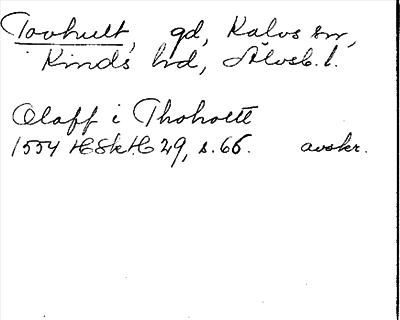 Tovhult, gd, Kalvs sn,
Kinds hd, Älvsb. l.
Olaff i Thoholtt
1554 HSkH 29, s. 66. avskr.